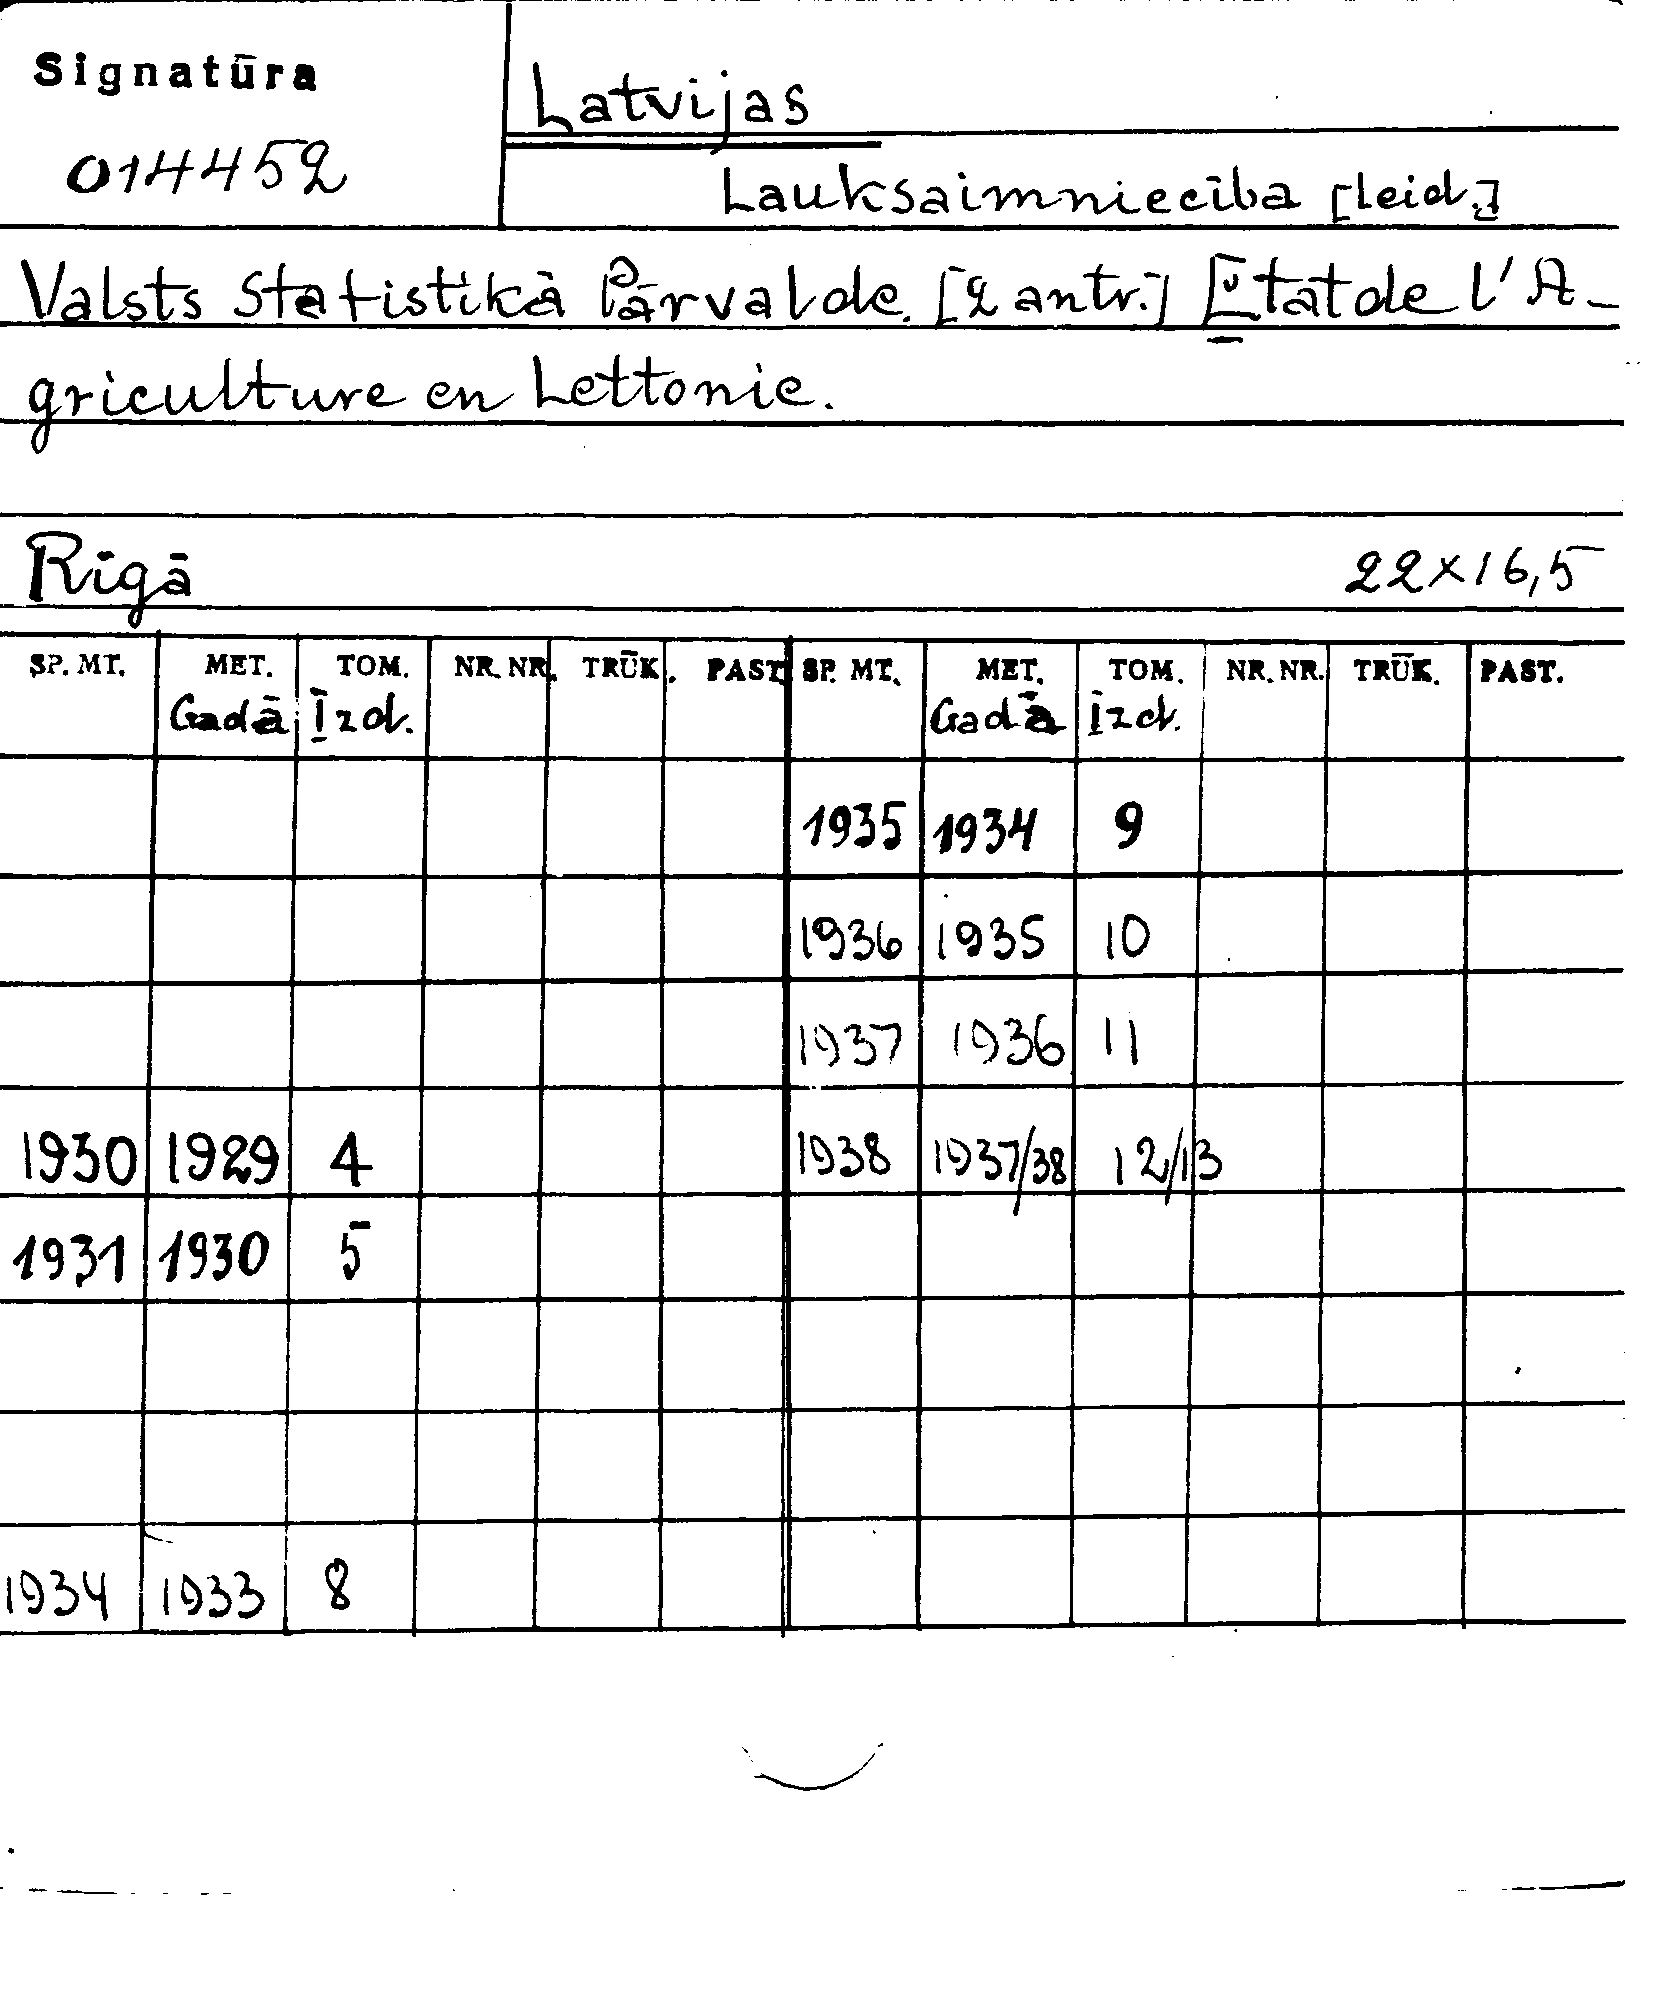 Signatūra
014452
Latvijas
Lauksaimniecība [leid.]
Valsts Statistikā Pārvalde. [2 antr.] Etat de l'A-
griculture en Lettonie.
Rīgā 22×16,5
SP. MT. MET. TOM. NR. NR. TRŪK. PAST. SP. MT. MET. TOM. NR. NR. TRŪK. PAST.
Gadā Izd. Gadā Izd.
1935 1934 9
1936 1935 10
1937 1936 11
1930 1929 4 1938 1937/38 12/13
1931 1930 5
1934 1933 8